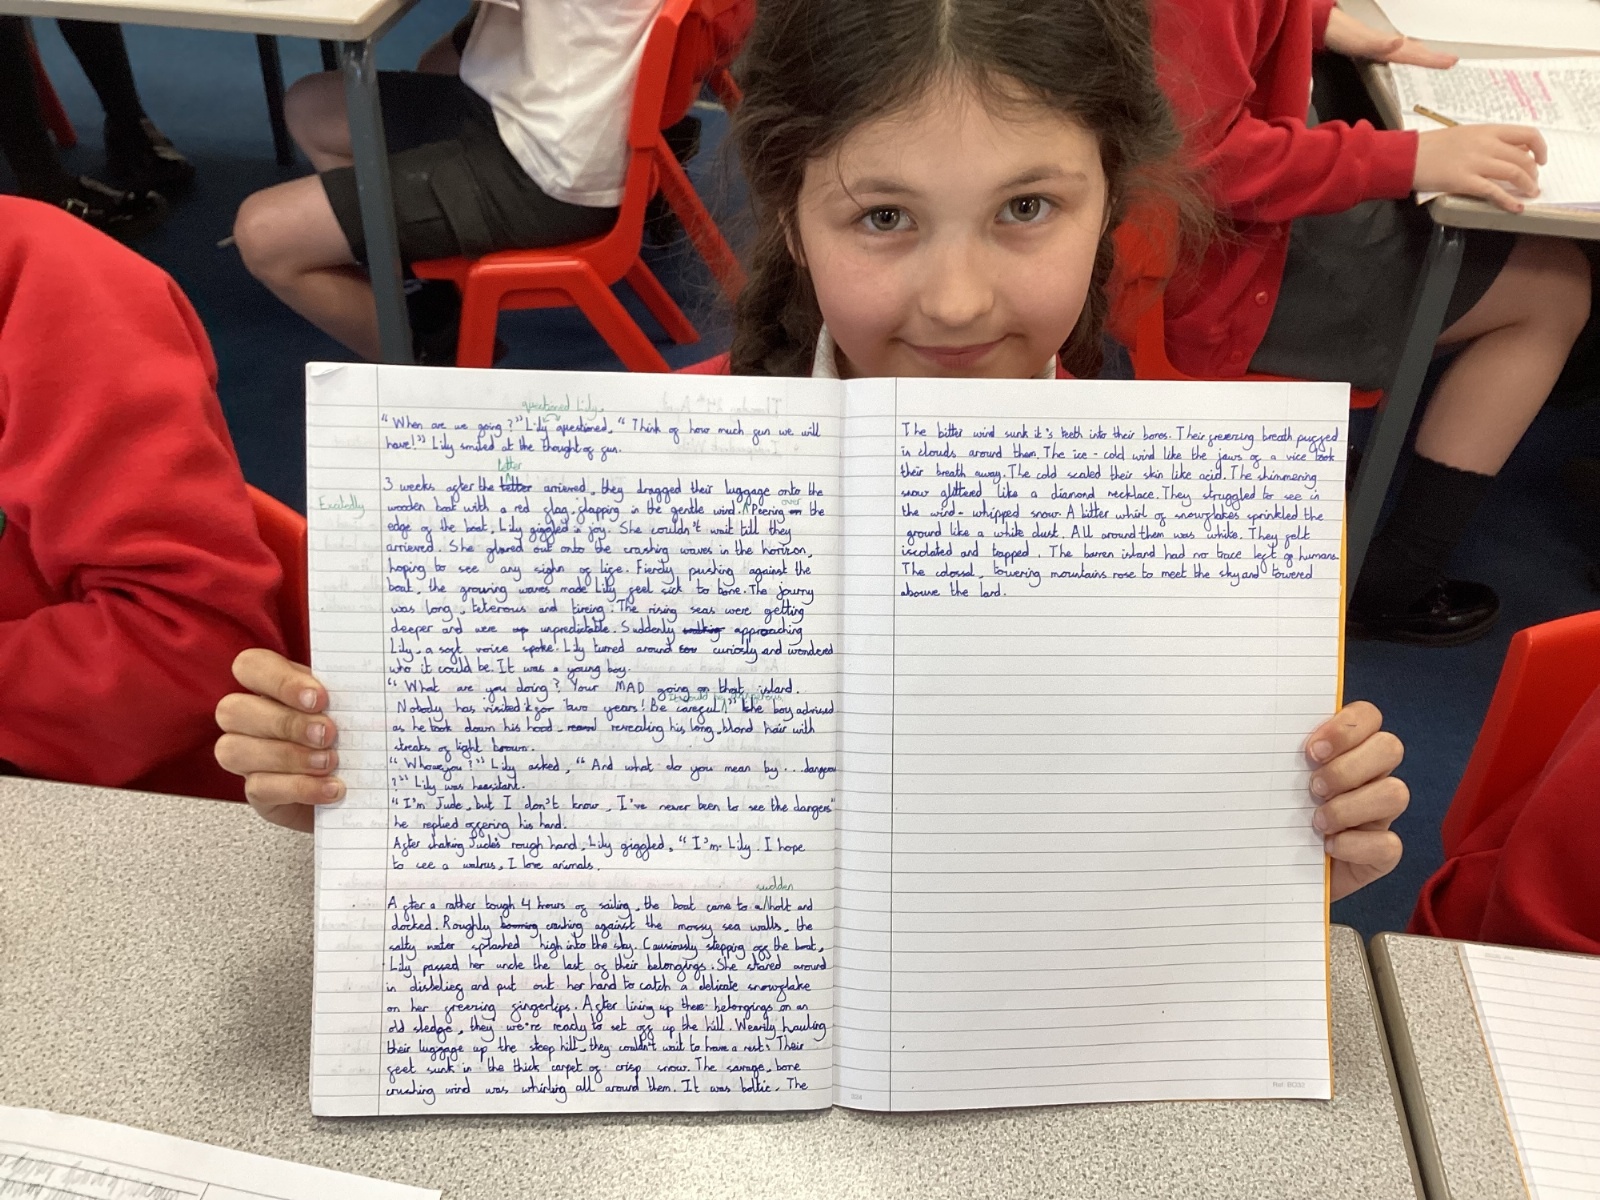 questioned Lily.
"When are we going?" Lily questioned. "Think of how much fun we will
have!" Lily smiled at the thought of fun.
letter
3 weeks after the letter arrieved, they dragged their luggage onto the
Excitedly
wooden boat with a red flag flapping in the gentle wind. Peering over the
edge of the boat, Lily giggled in joy. She couldn't wait till they
arrieved. She glared out onto the crashing waves in the horizon,
hoping to see any sighn of life. Fiercly pushing against the
boat, the growing waves made Lily feel sick to bone. The journy
was long, teterous and tireing. The rising seas were getting
deeper and were unpredictable. Suddenly approaching
Lily, a soft voice spoke. Lily turned around curiosly and wondered
who it could be. It was a young boy.
"What are you doing? Your MAD going on that island.
Nobody has visited it for two years! Be careful!" the boy advised
as he took down his hood, revealing his long, blond hair with
streaks of light brown.
"Who are you?" Lily asked, "And what do you mean by... danger
?" Lily was heasitant.
"I'm Jude, but I don't know, I've never been to see the dangers"
he replied offering his hand.
After shaking Jude's rough hand, Lily giggled, "I'm Lily. I hope
to see a walrus, I love animals.
sudden
After a rather tough 4 hours of sailing, the boat came to a holt and
docked. Roughly crashing against the mossy sea walls, the
salty water splashed high into the sky. Causiously stepping off the boat,
Lily passed her uncle the last of their belongings. She stared around
in disbelief and put out her hand to catch a delicate snowflake
on her freezing fingertips. After lining up there belongings on an
old sledge, they we're ready to set off up the hill. Wearily hauling
their luggage up the steep hill, they couldn't wait to have a rest. Their
feet sunk in the thick carpet of crisp snow. The savage, bone
crushing wind was whirling all around them. It was baltic. The
The bitter wind sunk it's teeth into their bones. Their freezing breath puffed
in clouds around them. The ice-cold wind like the jaws of a vice took
their breath away. The cold scaled their skin like acid. The shimmering
snow glittered like a diamond necklace. They struggled to see in
the wind-whipped snow. A bitter whirl of snowflakes sprinkled the
ground like a white dust. All around them was white. They felt
iscolated and trapped. The barren island had no trace left of humans.
The colossal, towering mountains rose to meet the sky and towered
abouve the land.